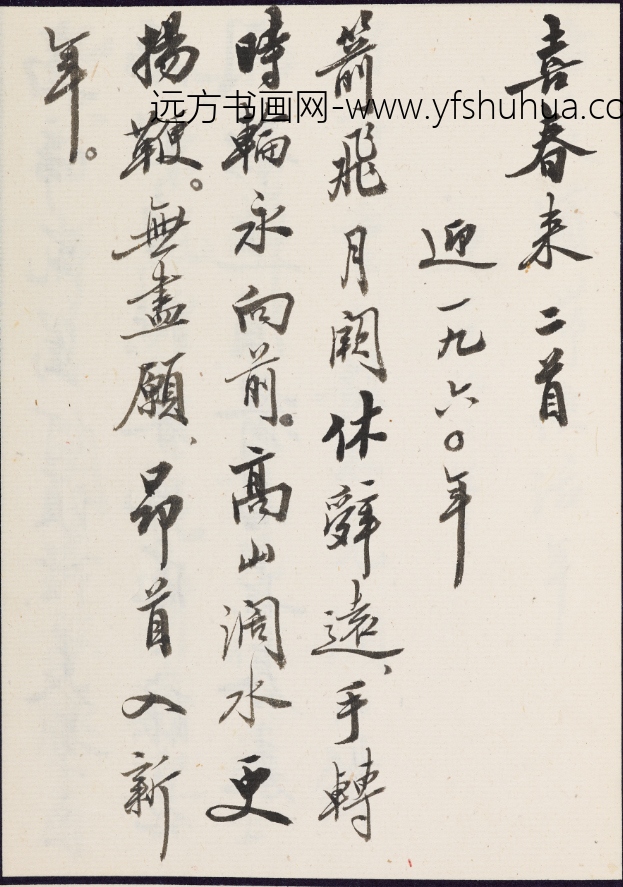 喜春来 二首
迎一九六〇年
箭飛月闕休辭遠、手轉
時輪永向前。高山濶水更
揚鞭。無盡願、昂首入新
年。
远方书画网-www.yfshuhua.co